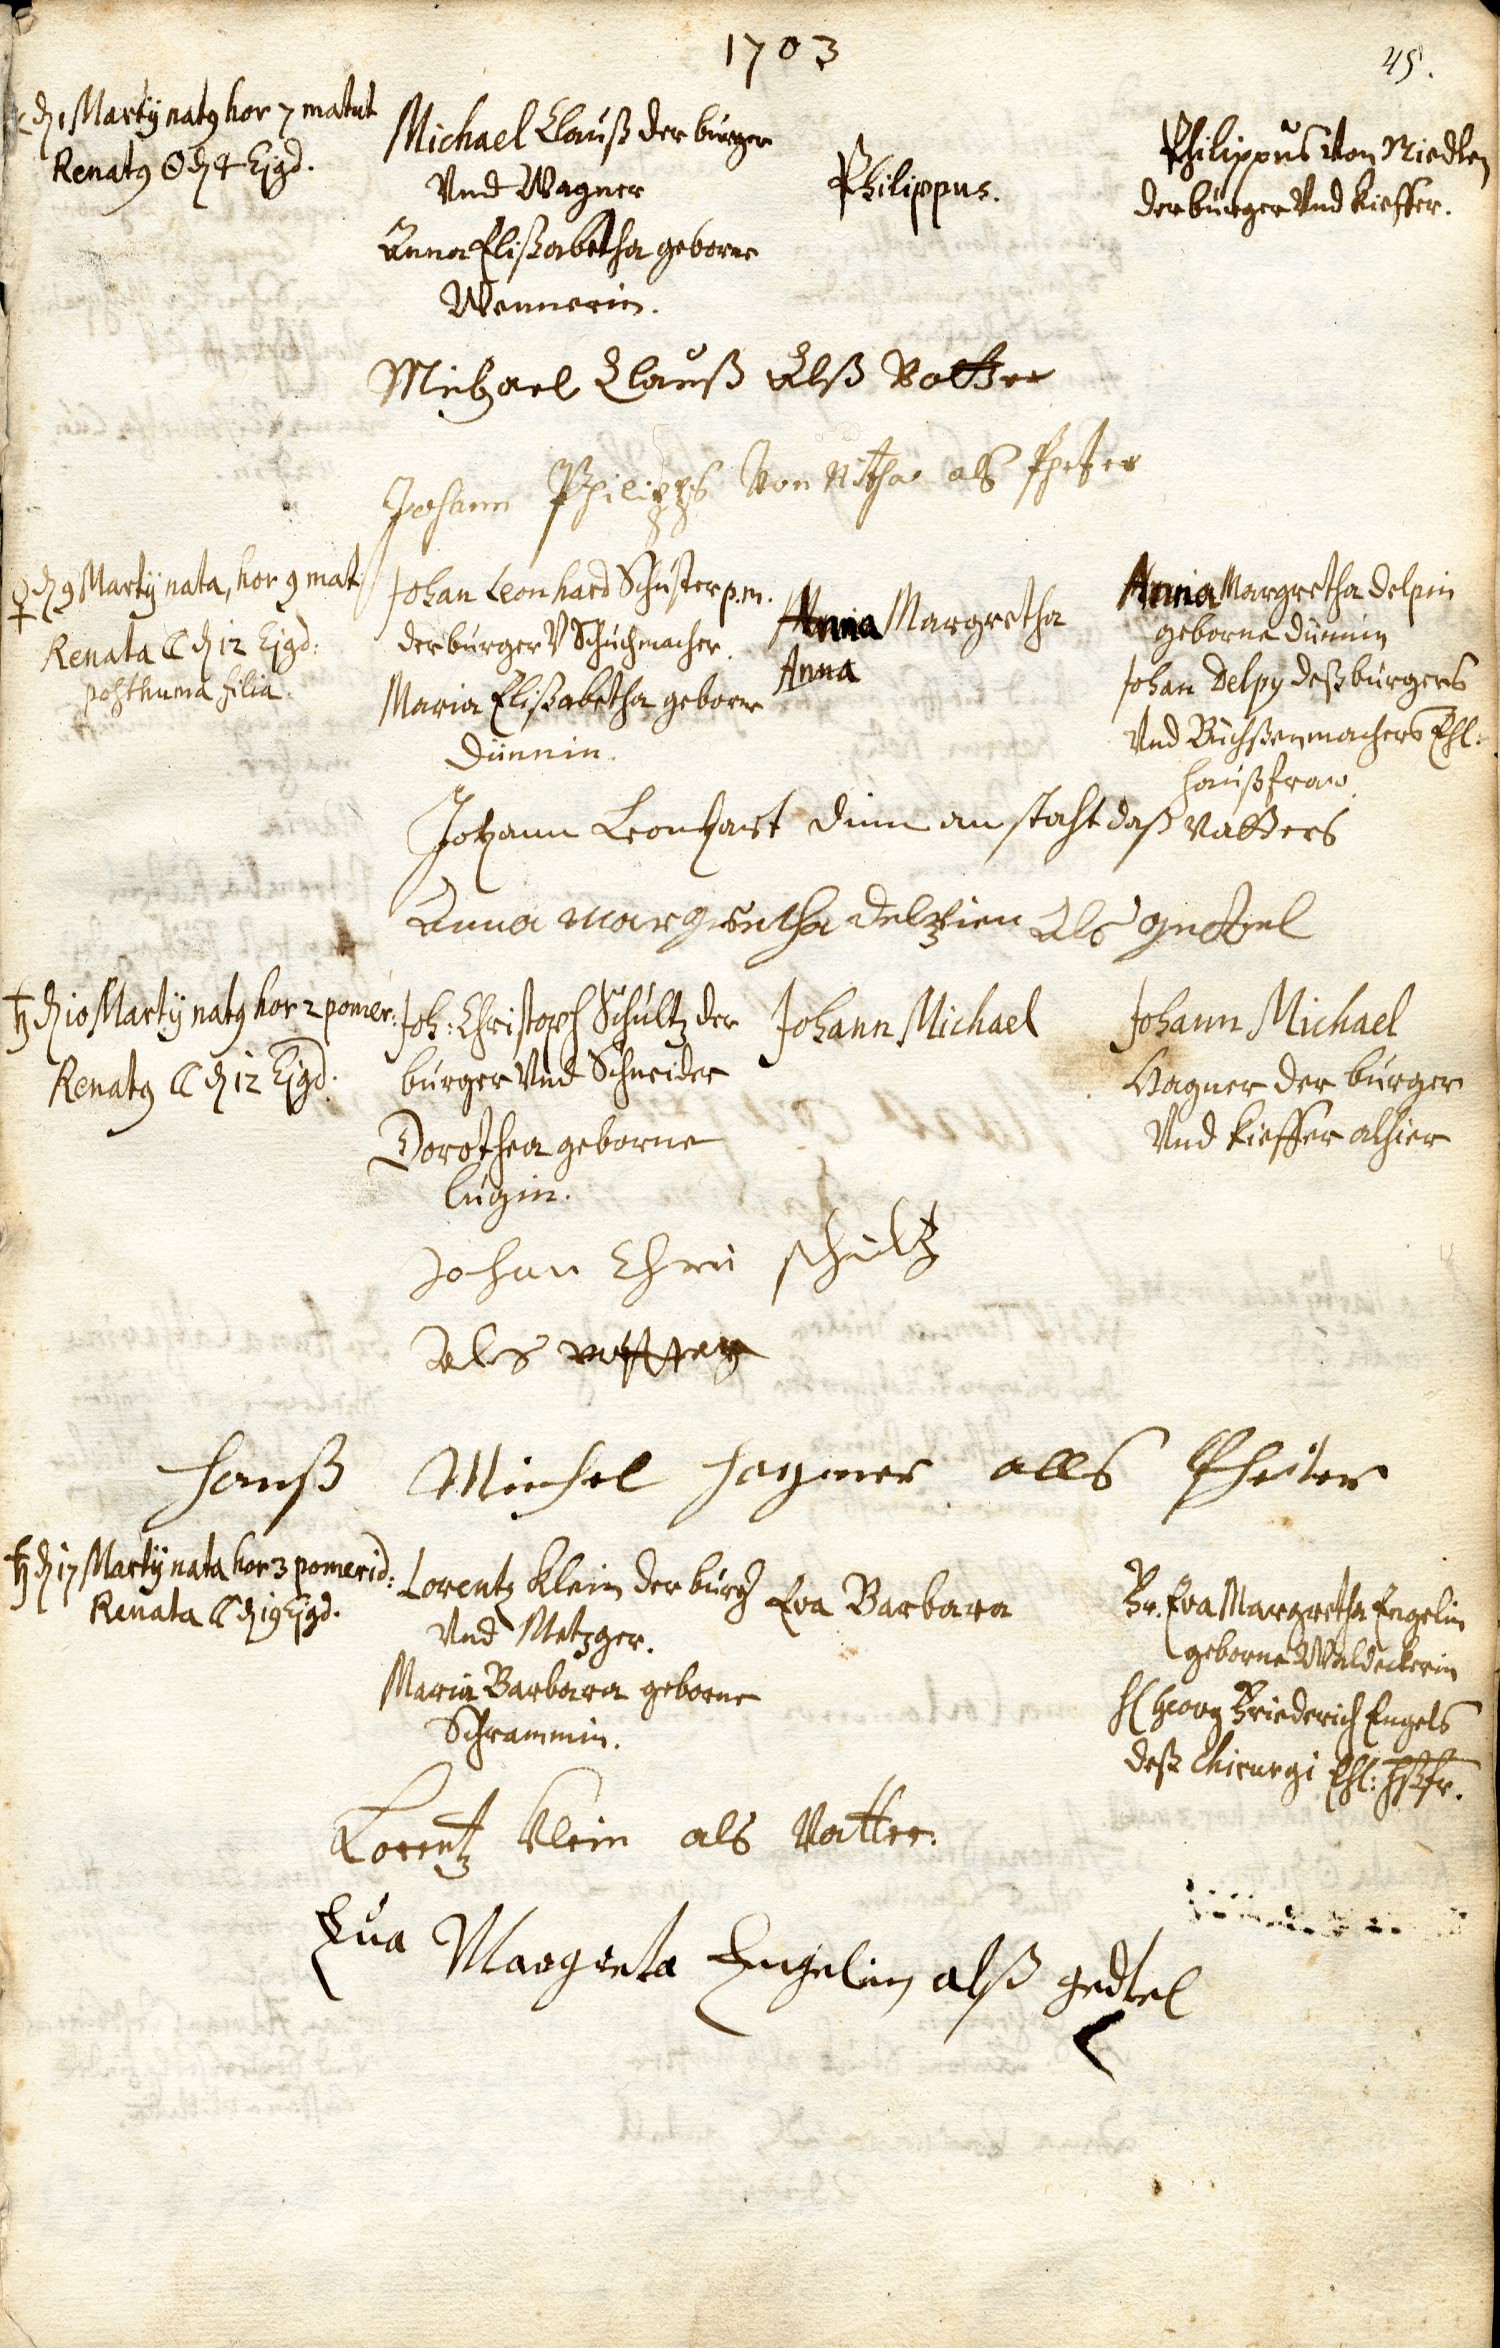 1703
45.
d. 1 Martij natq hor 7 matut
Renatq ☉ d. 4 Ejgd.
Michael Clauß der burger
Vnd Wagner
Anna Elisabetha geborne
Wennerin.
Philippus.
Philippus Von Niedten
der burger Vnd Kieffer.
Michael Clauß Alß Vatter
Johann Philipps Von als Pfetter
♀ d. 9 Martij nata, hor 9 mat
Renata ☾ d. 12 Ejgd:
posthuma filia.
Johan Leonhard Schuster p.m.
der burger V Schuchmacher.
Maria Elisabetha geborne
Dünnin.
Anna Margretha
Anna
Anna Margretha Delpin
geborne Dünnin
Johan Delpy deß burgers
Vnd Büchßenmachers Ehl:
Haußfraw.
Johann Leonhart Dinn an staht daß Vatters
Anna Margretha Delpien Als Gettel
♄ d. 10 Martij natq hor 2 pomer:
Renatq ☾ d. 12 Ejgd:
Joh: Christoph Schultz der
burger Vnd Schneider
Dorothea geborne
Lugin.
Johann Michael
Johann Michael
Hagner der burger
Vnd Kieffer alhier
Johan Chri Schultz
Als Vatter
Hanß Michel Hagner alls Pfeiter
♄ d. 17 Martij nata hor 3 pomerid:
Renata ☾ d. 19 Ejgd.
Lorentz Klein der burg
Vnd Metzger.
Maria Barbara geborne
Schrammin.
Eva Barbara
Fr. Eva Margretha Engelin
geborne Waldeckerin
H Georg Friederich Engels
deß Chirurgi Ehl: Hßfr.
Lorentz Klein als Vatter.
Eua Margreta Engelin alß gedtel